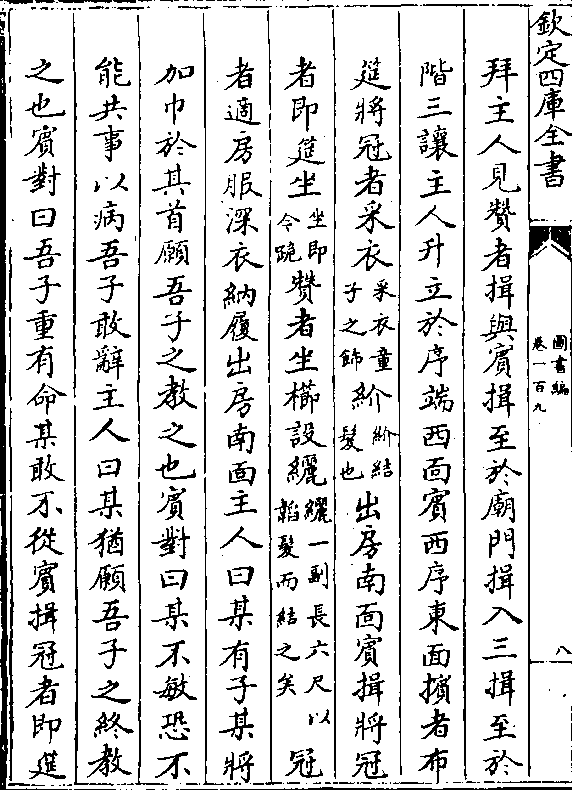 欽定四庫全書
圖書編
卷一百九
八
拜主人見贊者揖與賓揖至於廟門揖入三揖至於
階三讓主人升立於序端西面賓西序東面擯者布
筵將冠者采衣采衣童子之飾紒紒結髮也出房南面賓揖將冠
者即筵坐坐即令跪贊者坐櫛設纚纚一副長六尺以韜髮而結之矣冠
者適房服深衣納履出房南面主人曰某有子某將
加巾於其首願吾子之教之也賓對曰某不敏恐不
能共事以病吾子敢辭主人曰某猶願吾子之終教
之也賓對曰吾子重有命某敢不從賓揖冠者即筵